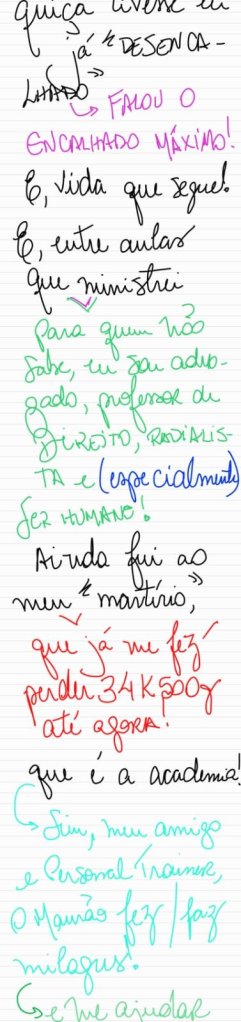 quiçá tivesse eu
já "DESENCA-
LHADO"
FALOU O
ENCALHADO MÁXIMO!
E, vida que segue!
E, entre aulas
que ministrei
Para quem não
sabe, eu sou advo-
gado, professor de
DIREITO, RADIALIS-
TA e (especialmente)
SER HUMANO!
Ainda fui ao
meu "martírio",
que já me fez
perder 34K500g
até agora.
que é a academia!
Sim, meu amigo
e Personal Trainer,
o Maurão fez/faz
milagres!
e me ajudar